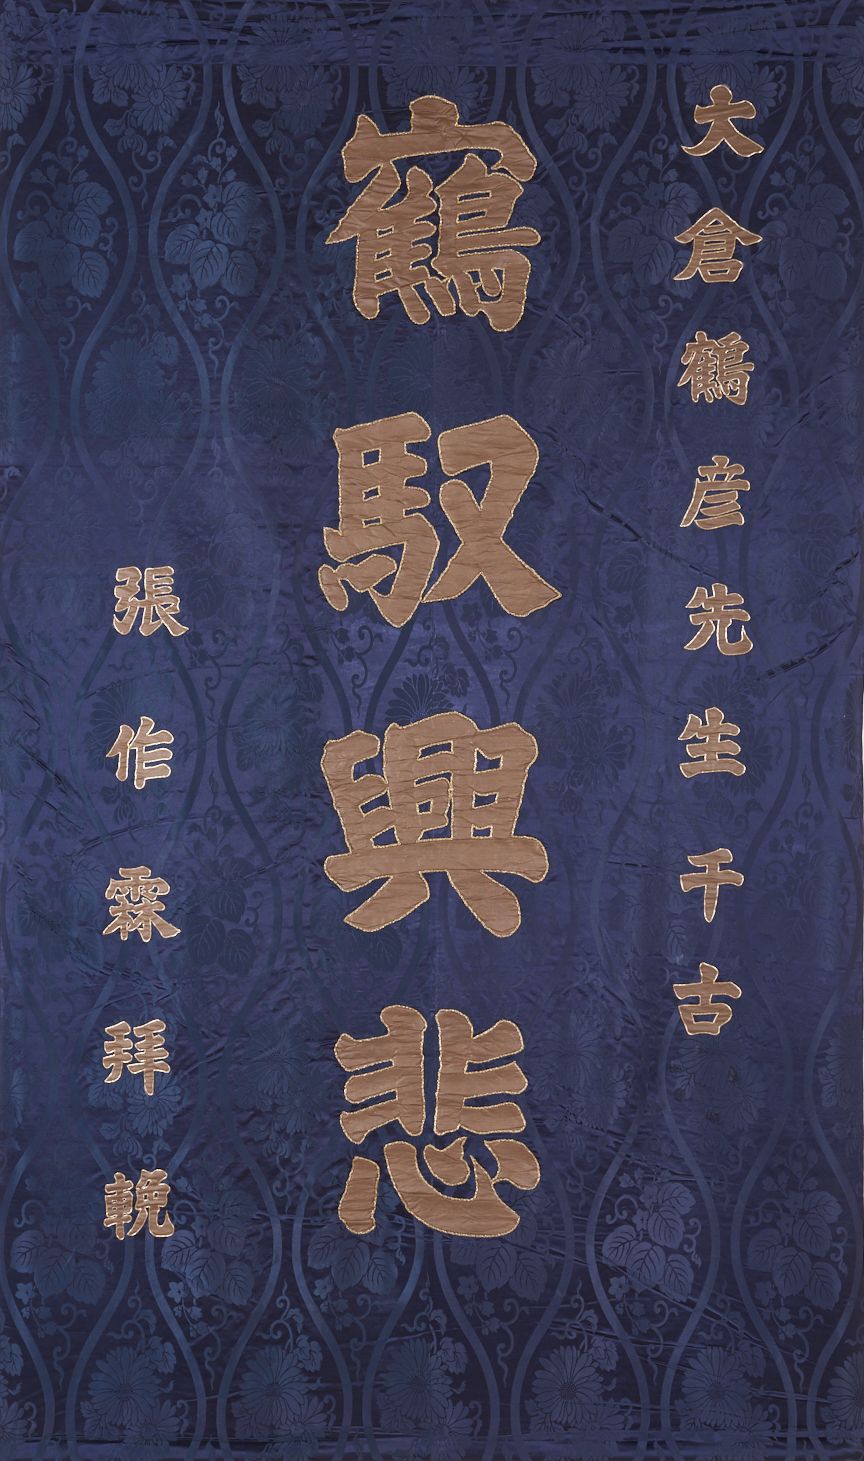 大倉鶴彦先生千古
鶴馭興悲
張作霖拜輓